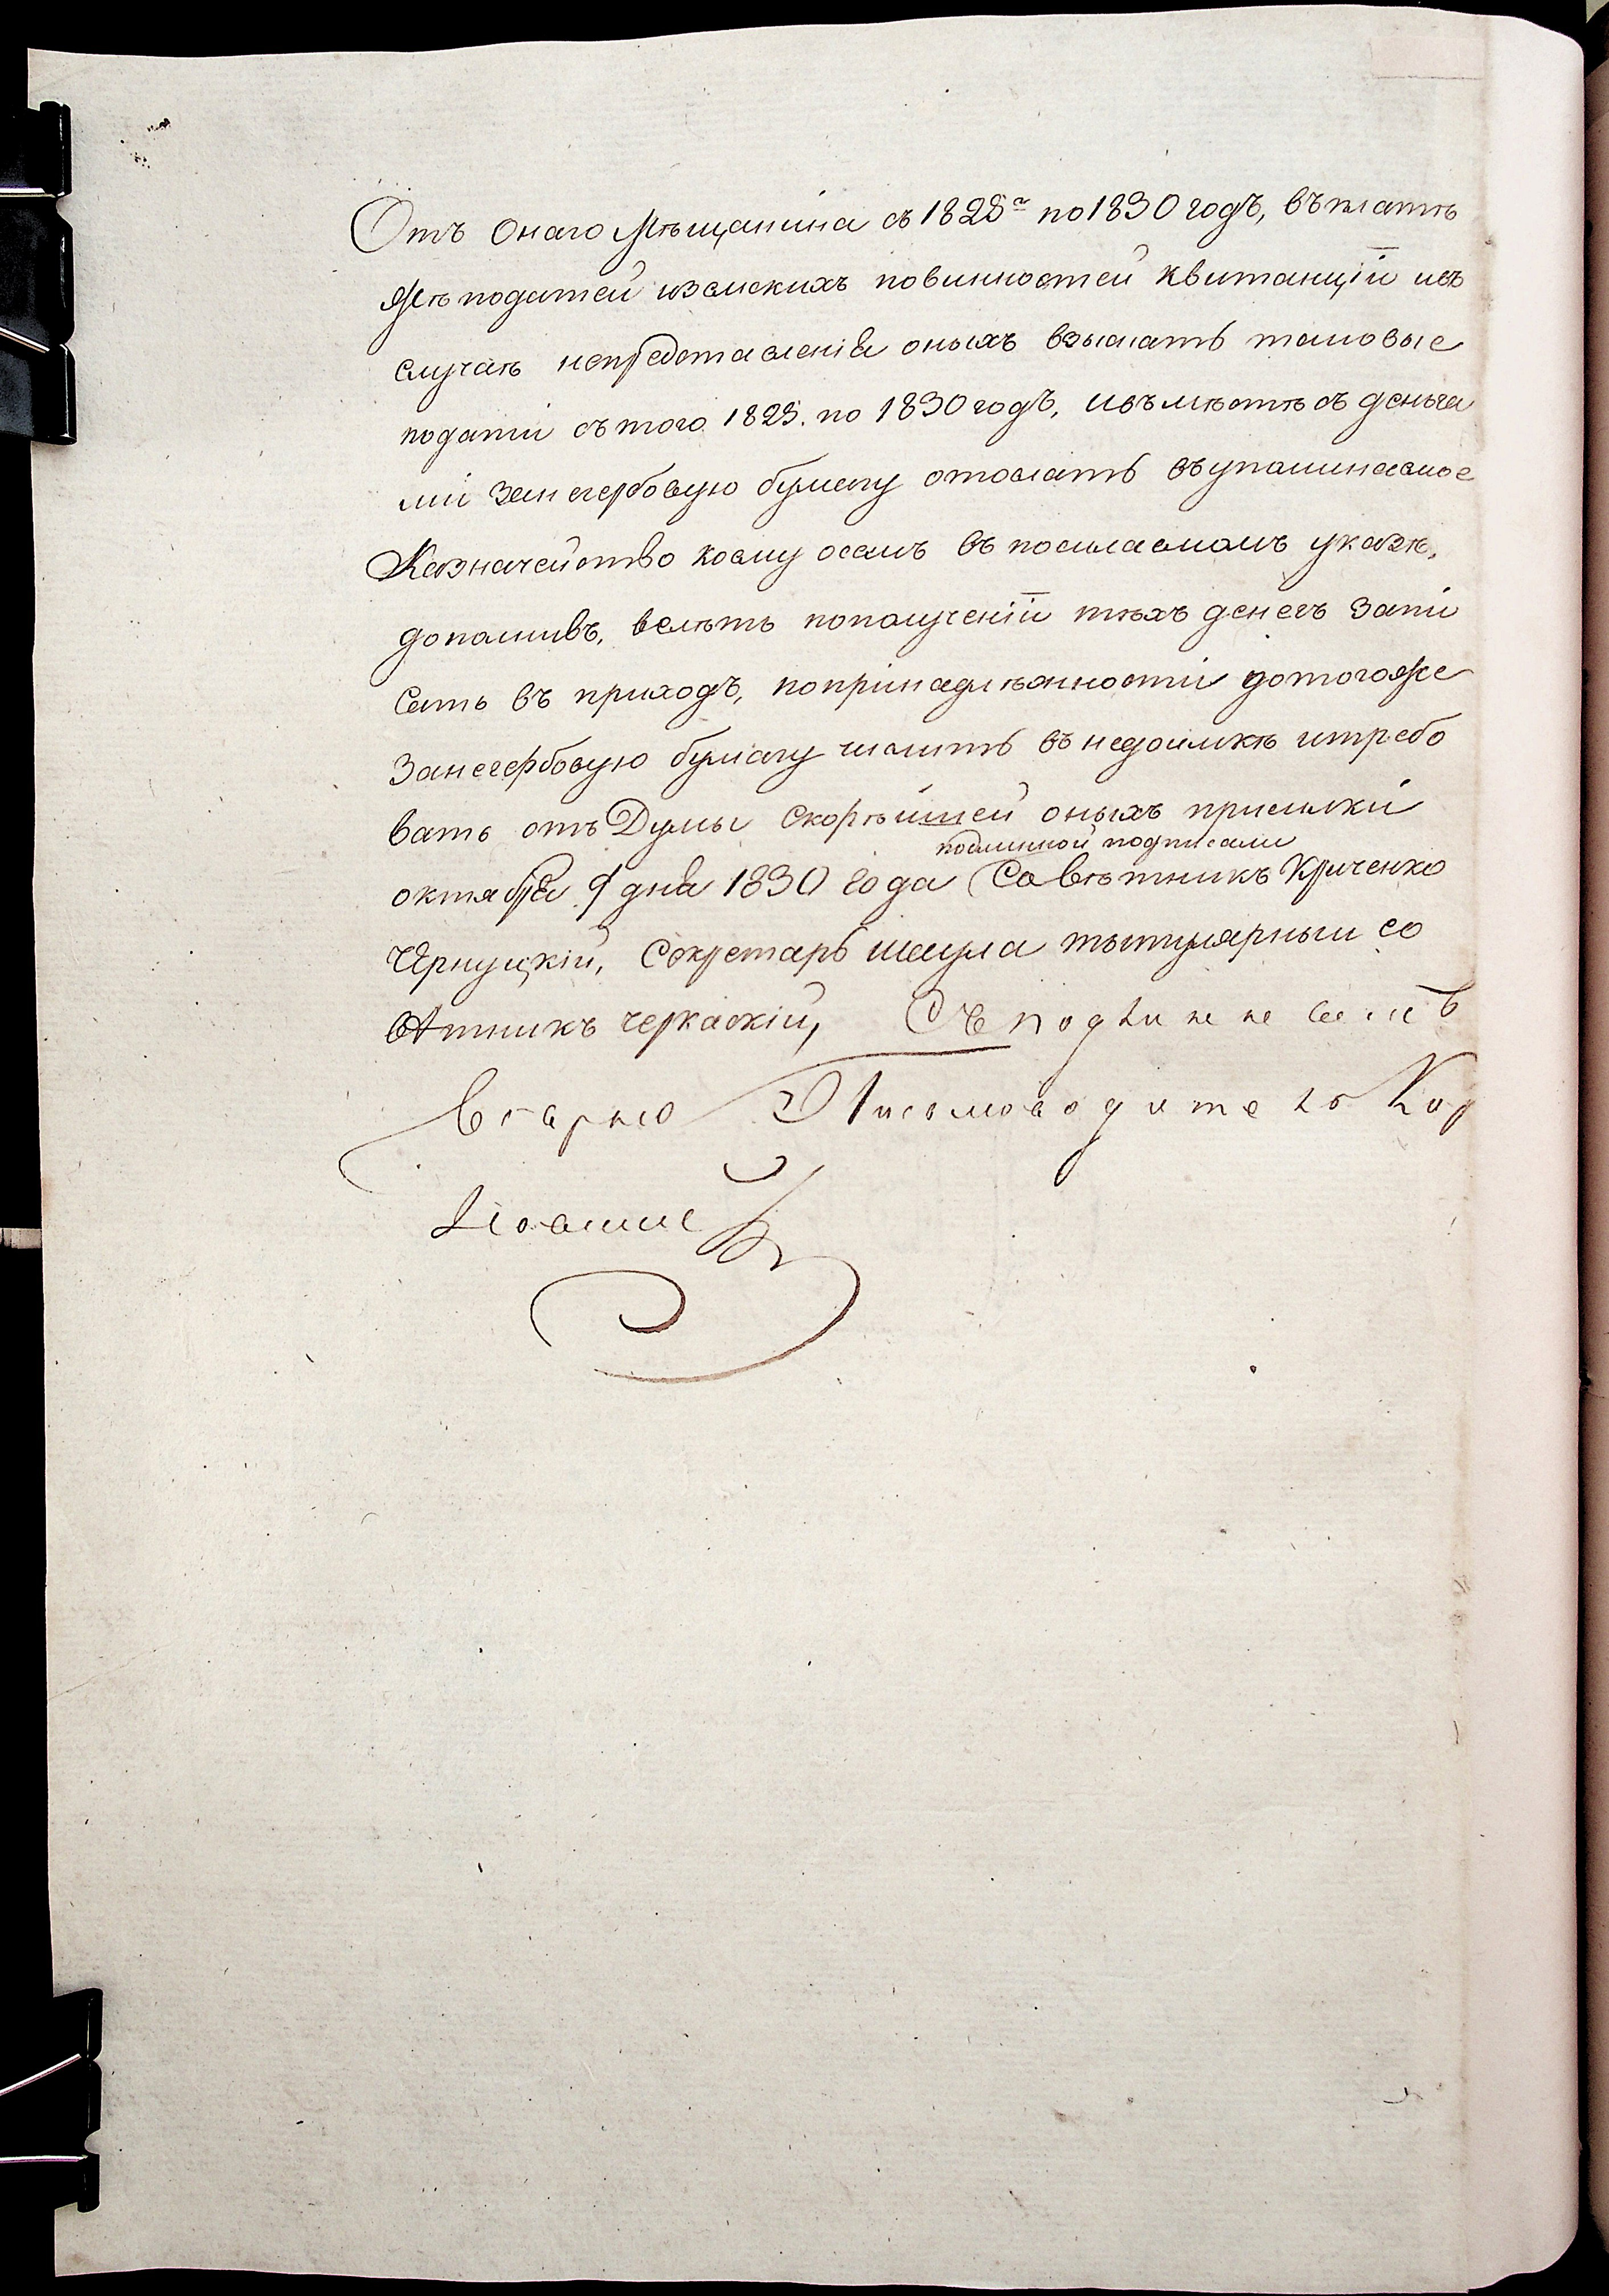 Отъ онаго Мѣщанина съ 1828го по 1830 годъ, въ платѣ
жѣ податей и земскихъ повинностей квитанцій ивъ
случаѣ непредставленія оныхъ взыскать таковые
податй съ того 1828. по 1830 годъ, ивъмѣстѣ съ деньга
ми за негербовую бумагу отослать въ упоминаемое
Казначейство коему осемъ въ посилаемомъ указѣ,
дополнивъ, велѣть пополученіи тѣхъ денегъ запи
сать въ приходъ, попринадлѣжности дотогоже
за негербовую бумагу числить въ недоимкѣ итребо
вать отъ Думы скорѣйшей оныхъ присылки
подлинной подписали
октября 9 дня 1830 года Совѣтникъ Криченко
Чернуцкій, Секретарь Шкула тытулярный со
вѣтникъ Черкаскій, Съ подлиннымъ
вѣрно Писмоводитель